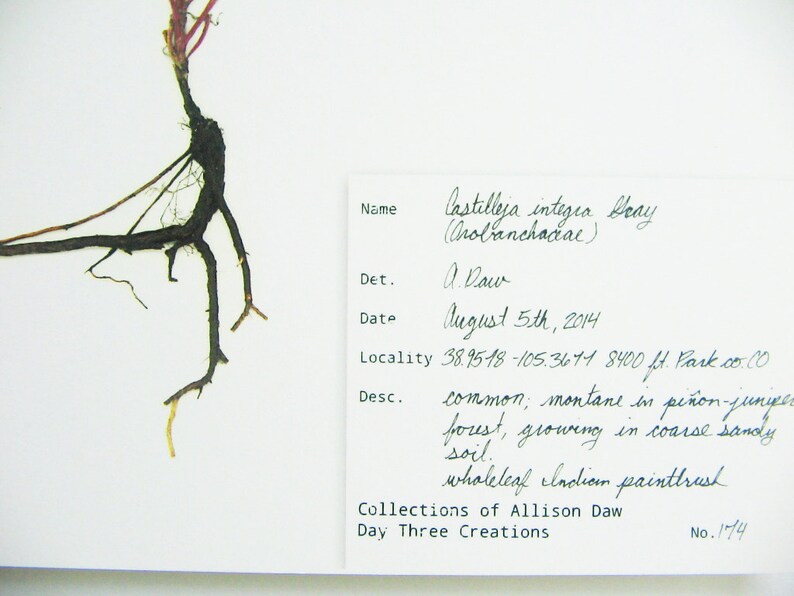 Name Castilleja integra Gray
(Orobanchaceae)
Det. A. Daw
Date August 5th, 2014
Locality 8400 ft. Park co. CO
Desc. common; montane in piñon-juniper
forest, growing in coarse sandy
soil.
wholeleaf Indian paintbrush
Collections of Allison Daw
Day Three Creations No. 174